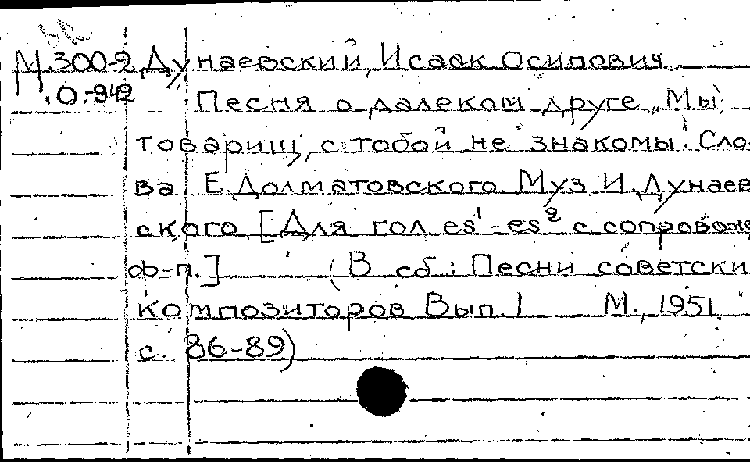 М.300-2 Дунаевский, Исаак Осипович
О-342 Песня о далеком друге „Мы,
товарищ, с тобой не знакомы". Сло-
ва Е. Долматовского Муз И. Дунаев
ского [Для гол es¹-es² с сопровожд
ф-п.] (В сб.: Песни советски
композиторов Вып. 1 М., 1951
с. 86-89)